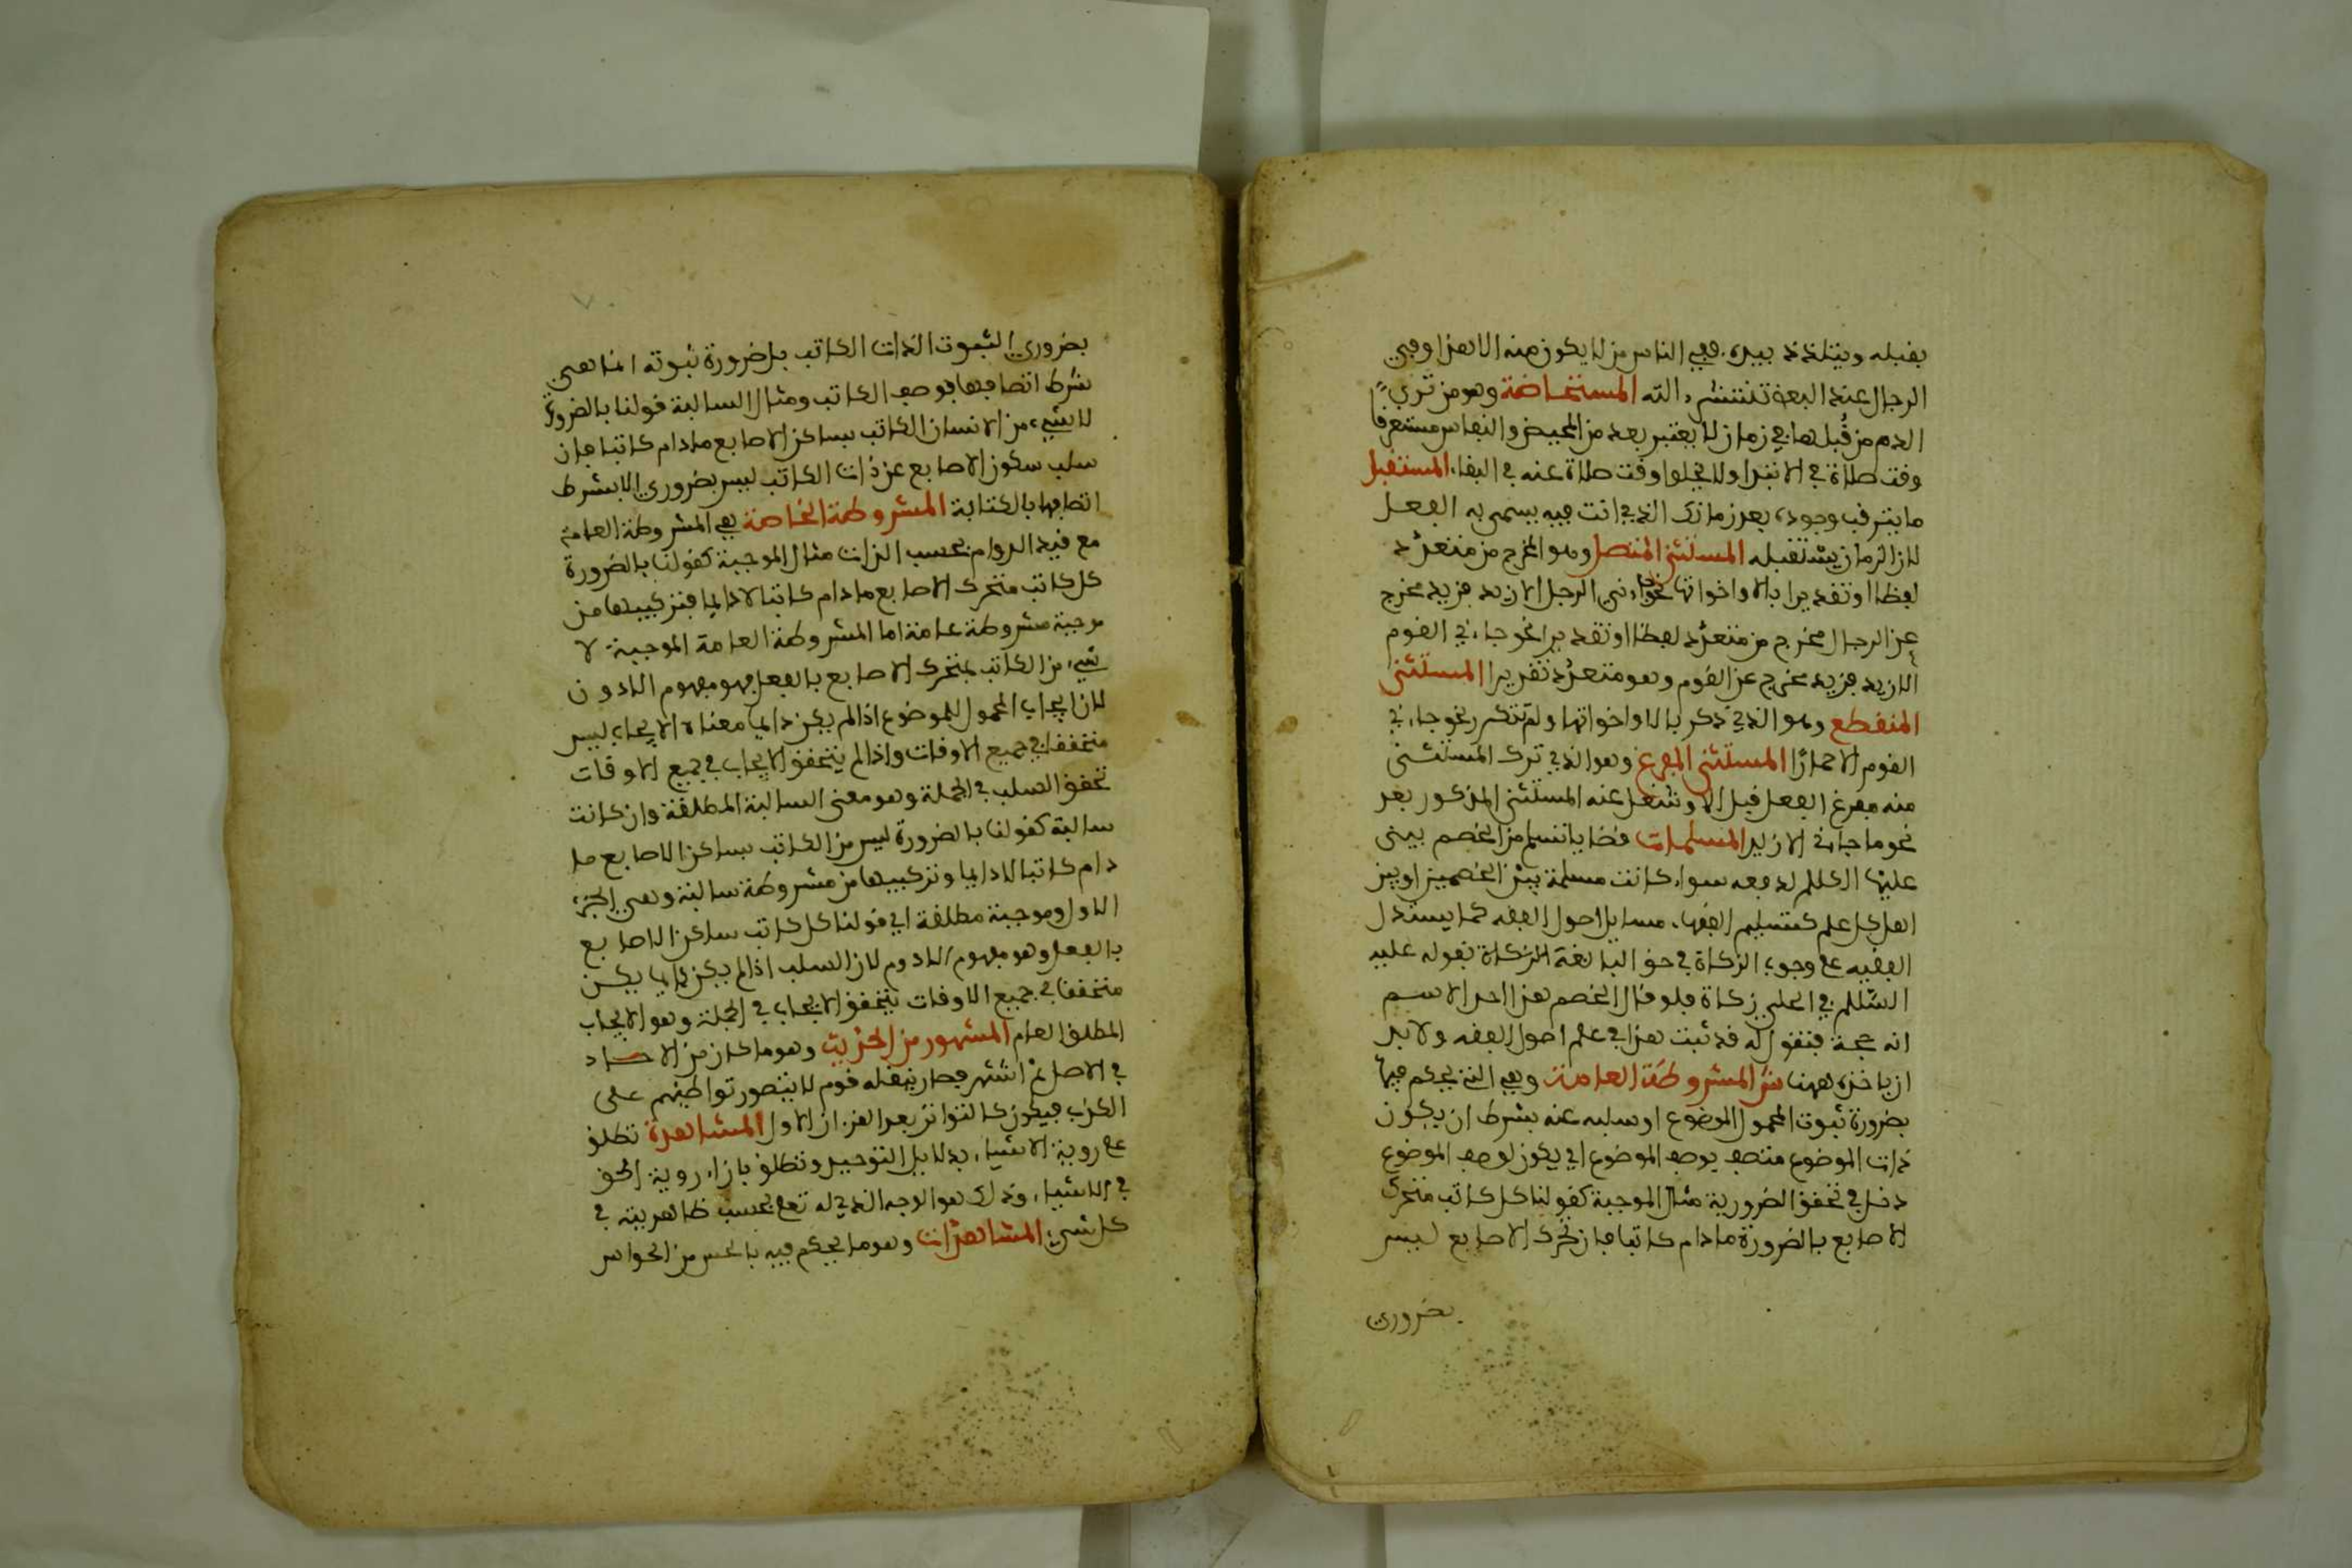 بقبله ويتلذذ بيده، ففي الناس من لا يكون منه الا هذا وفي
الرجال عند البعض تنتشر، الته المستحاضة وهو من ترى
الدم من قُبلها في زمان لا يعتبر بعد من الحيض والنفاس مستغرقا
وقت صلاة في الابتدا ولا يخلوا وقت صلاة عنه في البقا، المستقبل
ما يترقب وجوده بعد زمانك الذي انت فيه يسمى به الفعل
لان الزمان يستقبله المستثنى المتصل وهو المخرج من متعدّد
لفظا او تقديرا بالا واخواتها نحو جاءني الرجال الا زيد فزيد مخرج
عن الرجال مخرج من متعدّد لفظا او تقديرا نحو جاءني القوم
الا زيد فزيد مخرج عن القوم وهو متعدّد تقديرا المستثنى
المنقطع وهو الذي ذكر بالا واخواتها ولم تكسر نحو جاءني
القوم الا حمارًا المستثنى المفرغ وهو الذي ترك المستثنى
منه ففرغ الفعل قبل الا وشغل عنه المستثنى المذكور بعد
نحو ما جاءني الا زيد المسلمات قضايا تتسلم من الخصم يبنى
عليها الكلام لدفعه سواء كانت مسلمة بين الخصمين او بين
اهل كل علم كتسليم الفقهاء مسايل اصول الفقه كما يستدل
الفقيه على وجوب الزكاة في حق البالغة الزكاة بقوله عليه
السّلام في الحلي زكاة فلو قال الخصم هذا احد الاسم
انه حجة فنقول له قد ثبت هذا في علم اصول الفقه ولا بد
ان ياخذه ههنا المشروطة العامة وهي التي يحكم فيها
بضرورة ثبوت المحمول الموضوع او سلبه عنه بشرط ان يكون
ذات الموضوع متصف بوصف الموضوع اي يكون لوصف الموضوع
دخل في تحقق الضرورية مثال الموجبة كقولنا كل كاتب متحرك
الاصابع بالضرورة ما دام كاتبا فان تحرك الاصابع ليس
بضروري
بضروري الثبوت الذات الكاتب بل ضرورة ثبوته انما هي
شرط اتصافها بوصف الكاتب ومثال السالبة قولنا بالضرورة
لا شيء من الانسان الكاتب بساكن الاصابع ما دام كاتبا فان
سلب سكون الاصابع عن ذات الكاتب ليس بضروري الا بشرط
اتصافها بالكتابة المشروطة الخاصة هي المشروطة العامة
مع قيد الدوام بحسب الذات مثال الموجبة كقولنا بالضرورة
كل كاتب متحرك الاصابع ما دام كاتبا لا دايما فتركيبها من
موجبة مشروطة عامة اما المشروطة العامة الموجبة لا
شيء من الكاتب بمتحرك الاصابع بالفعل فهو مفهوم اللادون
لان ايجاب المحمول للموضوع اذا لم يكن دايما معناه الايجاب ليس
متحققا في جميع الاوقات واذا لم يتحقق الايجاب في جميع الاوقات
تحقق السلب في الجملة وهو معنى السالبة المطلقة وان كانت
سالبة كقولنا بالضرورة ليس من الكاتب بساكن الاصابع ما
دام كاتبا لا دايما وتركيبها من مشروطة سالبة وهي الجزء
الاول وموجبة مطلقة اي قولنا كل كاتب ساكن الاصابع
بالفعل وهو مفهوم اللادوم لان السلب اذا لم يكن دايما يكن
متحققا في جميع الاوقات يتحقق الايجاب في الجملة وهو الايجاب
المطلق العام المشهور من الحديث وهو ما كان من الاحاد
في الاصل ثم اشتهر فصار ينقله قوم لا يتصور تواطيهم على
الكذب فيكون كالتواتر بعد القرن الاول المشاهدة تطلق
على روية الاشياء بدلايل التوحيد وتطلق بازاء روية الحق
في الاشياء وذلك هو الوجه الذي له تعلى بحسب ظاهريته في
كل شيء المشاهدات وهو ما يحكم فيه بالحس من الحواس